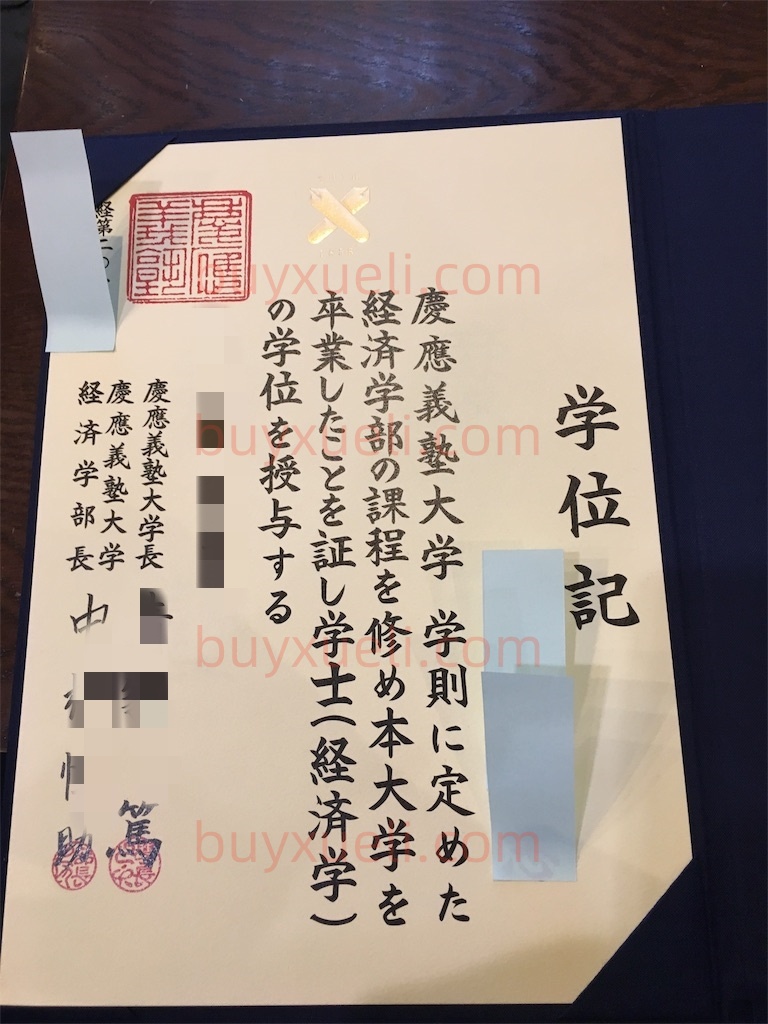 学位記
慶應義塾大学 学則に定めた
経済学部の課程を修め本大学を
卒業したことを証し学士(経済学)
の学位を授与する
慶應義塾大学長
慶應義塾大学
経済学部長
篤
中
助
経第二〇
慶應義塾
buyxueli.com
buyxueli.com
buyxueli.com
buyxueli.com